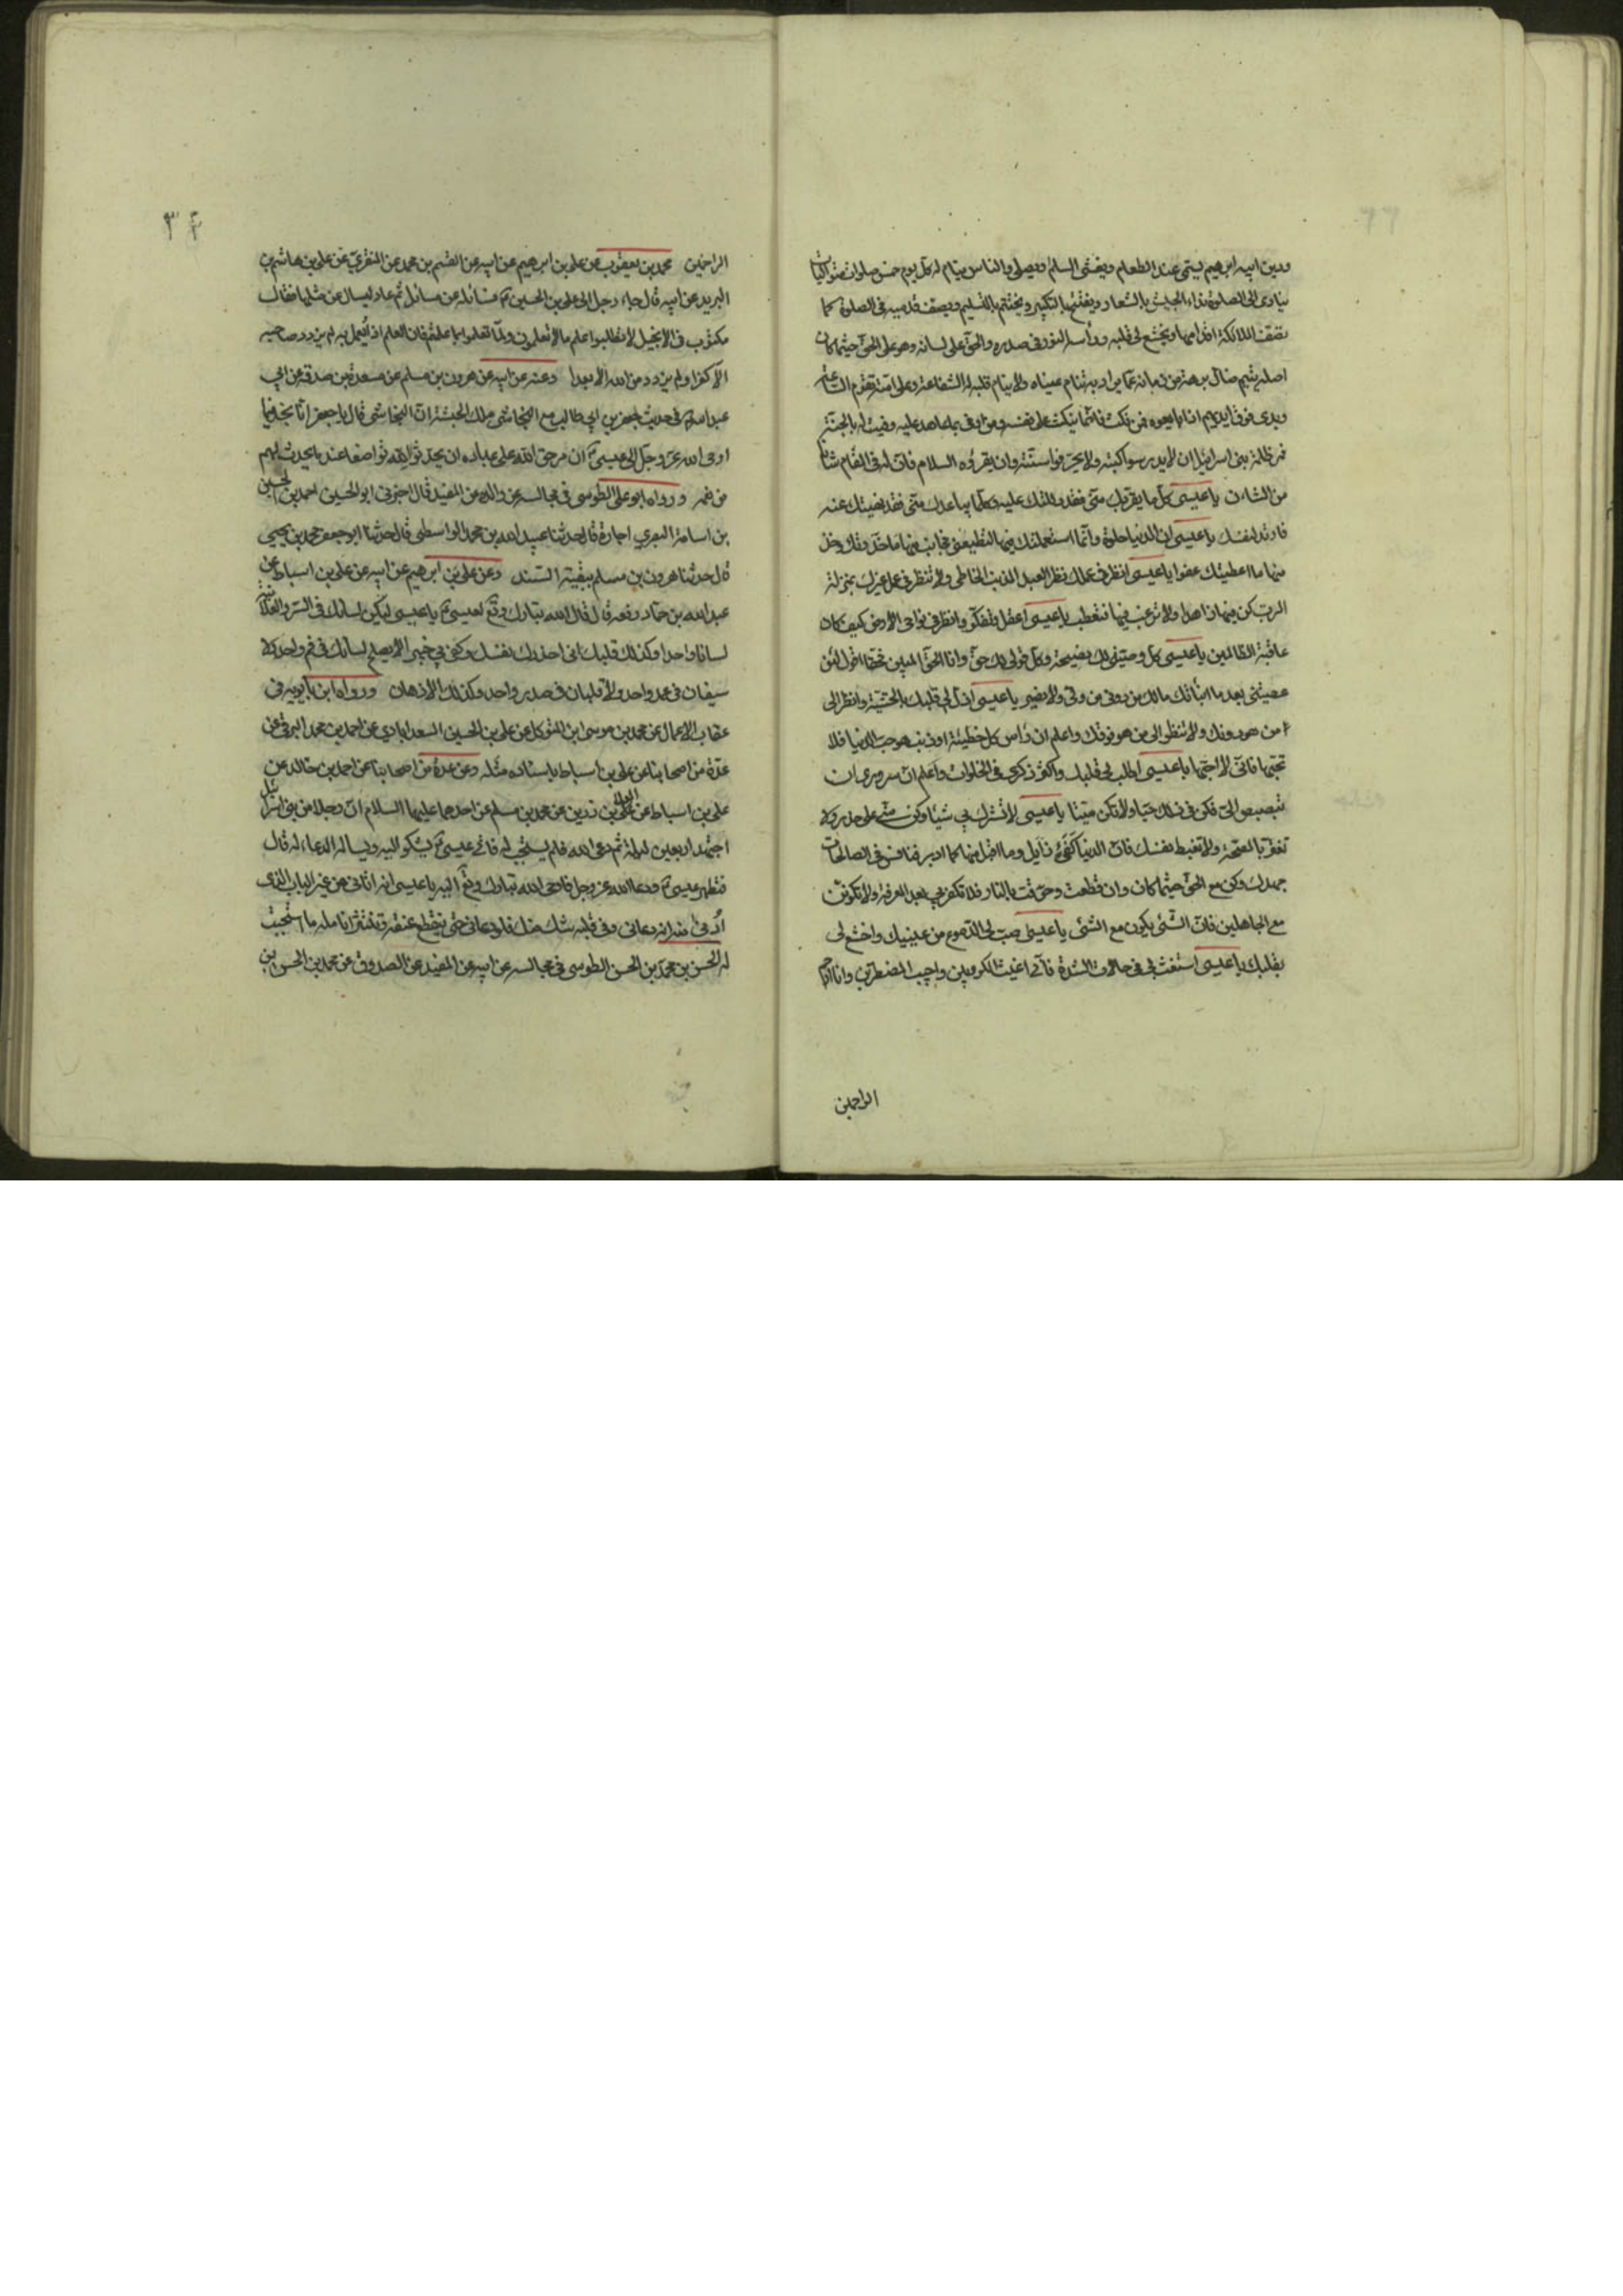 ودين ابيه ابرهيم يسمّى عند الطعام ويفشى السلام ويصلى والناس نيام له كل يوم خمس صلوات متواليات
ينادى الى الصلوة كنداء الجيش بالشعار ويفتتح بالتكبير ويختتم بالتسليم ويصف قدميه فى الصلوة كما
تصف الملائكة اقدامها ويخشع لى قلبه وراسه النور فى صدره والحق على لسانه وهو على الحق حيثما كان
اصله يتيم ضال برهة من زمانه عما يراد به تنام عيناه ولا ينام قلبه له الشفاعة وعلى امته تقوم الساعة
ويدى فوق ايديهم اذا بايعوه فمن نكث فانما ينكث على نفسه ومن اوفى بما عاهد عليه وفيت له بالجنة
فمر ظلمة بنى اسرائيل ان لا يدرسوا كتبه ولا يحرفوا سنته وان يقرؤه السلام فان له فى المقام شانا
من الشان يا عيسى كل ما يقربك منى فقد دللتك عليه وكلما يباعدك منى فقد نهيتك عنه
فارتد لنفسك يا عيسى ان الدنيا حلوة وانما استعملتك فيها لتطيعنى فجانب منها ما حذرتك وخذ
منها ما اعطيتك عفوا يا عيسى انظر فى عملك نظر العبد المذنب الخاطى ولا تنظر فى عمل غيرك بمنزلة
الرب كن فيها زاهدا ولا ترغب فيها فتعطب يا عيسى اعقل وتفكر وانظر فى نواحى الارض كيف كان
عاقبة الظالمين يا عيسى كل وصيتى لك نصيحة وكل قولى لك حق وانا الحق المبين فحقا اقول لئن
عصيتنى بعد ما انبأتك مالك من دونى من ولى ولا نصير يا عيسى اذل لى قلبك بالخشية وانظر الى
من هو دونك ولا تنظر الى من هو فوقك واعلم ان راس كل خطيئة او ذنب هو حب الدنيا فلا
تحبها فانى لا احبها يا عيسى اطب لى قلبك واكثر ذكرى فى الخلوات واعلم ان سرورى ان
تبصبص الىّ فكن فى ذلك حيا ولا تكن ميتا يا عيسى لا تشرك بى شيئا وكن منى على حذر ولا
تغتر بالصحة ولا تغبط نفسك فان الدنيا كفئ زايل وما اقبل منها كما ادبر فنافس فى الصالحات
جهدك وكن مع الحق حيثما كان وان قطعت وحرقت بالنار فلا تكفر بى بعد المعرفة ولا تكونن
مع الجاهلين فان الشئ يكون مع الشئ يا عيسى صب لى الدموع من عينيك واخشع لى
بقلبك يا عيسى استغث بى فى حالات الشدة فانى اغيث المكروبين واجيب المضطرين وانا ارحم
الراحمين
٣٤
الراحمين محمد بن يعقوب عن على بن ابرهيم عن ابيه عن القسم بن محمد عن المنقرى عن على بن هاشم بن
البريد عن ابيه قال جاء رجل الى على بن الحسين ع فسائله عن مسائل ثم عاد ليسال عن مثلها فقال
مكتوب فى الانجيل لا تطلبوا علم ما لا تعلمون ولما تعلموا بما علمتم فان العلم اذا لم يعمل به لم يزدد صاحبه
الا كفرا ولم يزدد من الله الا بعدا وعنه عن ابيه عن هرون بن مسلم عن مسعدة بن صدقة عن ابى
عبد الله ع فى حديث جعفر بن ابى طالب مع النجاشى ملك الحبشة ان النجاشى قال يا جعفر انا نجد فيما
اوحى الله عز وجل الى عيسى ع ان من حق الله على عباده ان يحدثوا لله تواضعا عند ما يحدث لهم
من نعمه ورواه ابو على الطوسى فى مجالسه عن والده عن المفيد قال اخبرنى ابو الحسين احمد بن الحسين
بن اسامة البصرى اجازة قال حدثنا عبيد الله بن محمد الواسطى قال حدثنا ابو جعفر محمد بن يحيى
قال حدثنا هرون بن مسلم ببقية السند وعن على بن ابرهيم عن ابيه عن على بن اسباط عن
عبد الله بن حماد رفعه قال قال الله تبارك وتع لعيسى ع يا عيسى ليكن لسانك فى السر والعلانية
لسانا واحدا وكذلك قلبك انى احذرك نفسك وكفى بى خبيرا لا يصلح لسانان فى فم واحد ولا
سيفان فى غمد واحد ولا قلبان فى صدر واحد وكذلك الاذهان ورواه ابن بابويه فى
عقاب الاعمال عن محمد بن موسى ابن المتوكل عن على بن الحسين السعدابادى عن احمد بن محمد البرقى عن
عدة من اصحابنا عن على بن اسباط باسناده مثله وعن عدة من اصحابنا عن احمد بن خالد عن
على بن اسباط عن العلا بن رزين عن محمد بن مسلم عن احدهما عليهما السلام ان رجلا من بنى اسرائيل
اجتهد اربعين ليلة ثم دعى الله فلم يستجب له فاتى عيسى ع يشكو اليه ويساله الدعاء له قال
فتطهر عيسى ع ودعا الله عز وجل فاوحى الله تبارك وتع اليه يا عيسى انه اتانى من غير الباب الذى
أوتى منه انه دعانى وفى قلبه شك منك فلو دعانى حتى ينقطع عنقه وتنتثر انامله ما استجبت
له الحسن بن محمد بن الحسن الطوسى فى مجالسه عن ابيه عن المفيد عن الصدوق عن محمد بن الحسن بن